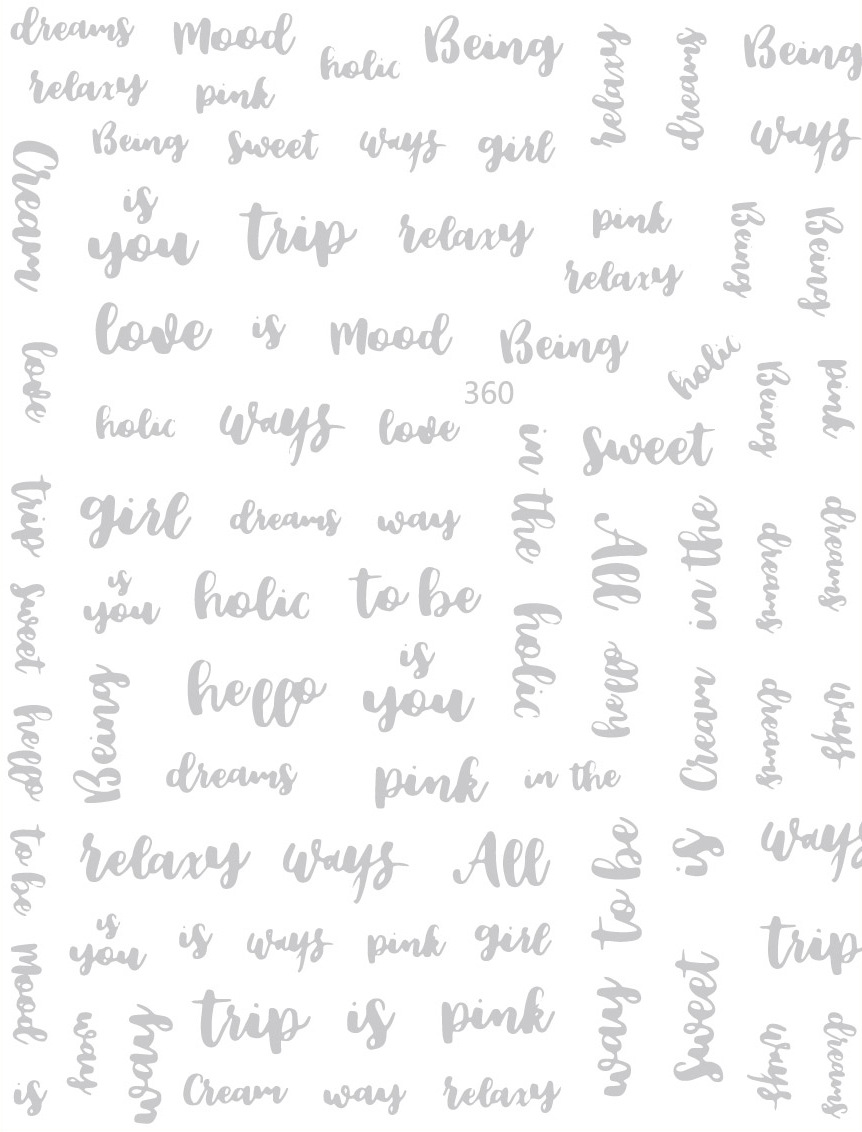 dreams Mood holic Being relaxy dreams Being
relaxy pink
Being sweet ways girl ways
Cream
is
you trip relaxy pink Being Being
relaxy
love is Mood Being holic Being pink
love
360
holic ways love in the sweet
trip girl dreams way All in the dreams dreams
is
you holic to be
sweet holic hello
is
hello you
Being Cream dreams ways
hello dreams pink in the
relaxy ways All to be is ways
to be
is
you is ways pink girl trip
Mood way sweet
way way trip is pink ways dreams
is Cream way relaxy